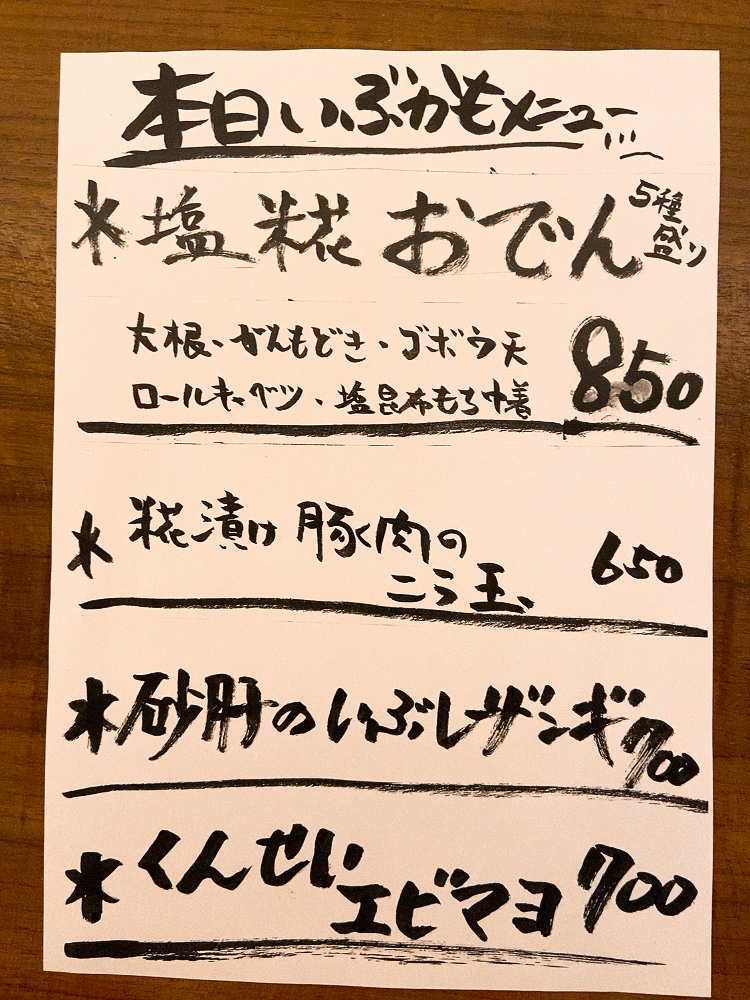 本日いぶかもメニュー
*塩糀おでん 5種盛り
大根・がんもどき・ゴボウ天 850
ロールキャベツ・塩昆布もち巾着
*糀漬け 豚肉の
ニラ玉 650
*砂肝のいぶしザンギ 700
*くんせい
エビマヨ 700